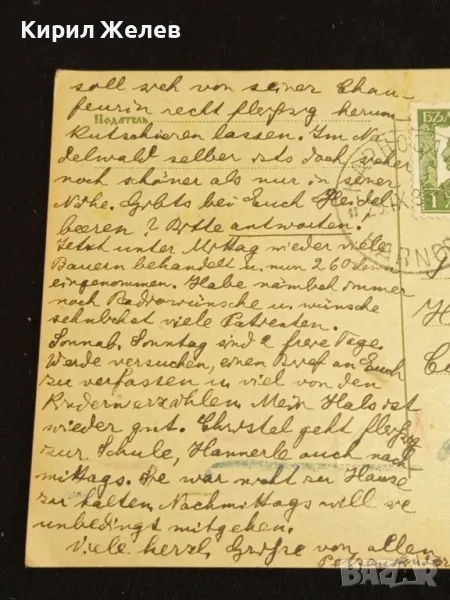 Кирил Желев
soll sich von seiner Chau-
feurin recht fleißig herum
Податель
kutschieren lassen. Im Na-
delwald selber ists doch sicher
noch schöner als nur in seiner
Nähe. Gibts bei Euch Heidel
beeren? Bitte antworten.
Jetzt unter Mittag wieder viele
Bauern behandelt u. nun 260
eingenommen. Habe nämlich immer
noch Radiowünsche u. wünsche
sehnlichst viele Patienten.
Sonnab. Sonntag sind 2 freie Tage.
Werde versuchen, einen Brief an Euch
zu verfassen u. viel von den
Kindern erzählen. Mein Hals ist
wieder gut. Christel geht fleißig
zur Schule, Hannerle auch nach
mittags. Sie war nicht zu Hause
zu halten. Nachmittags will sie
unbedingt mitgehen.
Viele herzl. Grüße von allen
БЪЛ
1
bazar.bg